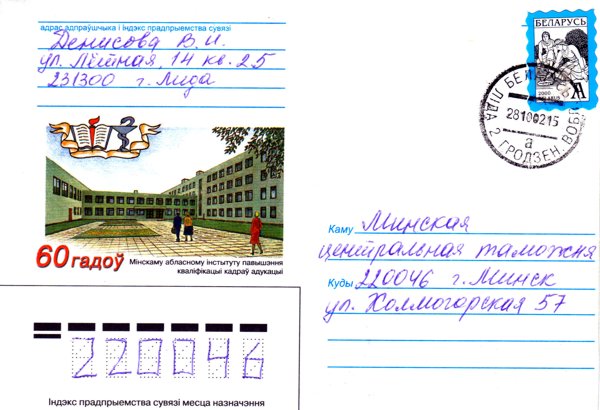 адрас адпраўшчыка і індэкс прадпрыемства сувязі
Денисова В.И.
ул. Лётная, 14 кв. 25
231300 г. Лида
БЕЛАРУСЬ
2000
БЕЛ
ЛІДА 2 ГРОДЗЕН. ВОБЛ
28100215
а
60 гадоў
Мінскаму абласному інстытуту павышэння
кваліфікацыі кадраў адукацыі
Каму Минская
центральная таможня
Куды 220046 г. Минск
ул. Холмогорская 57
220046
Індэкс прадпрыемства сувязі месца назначэння